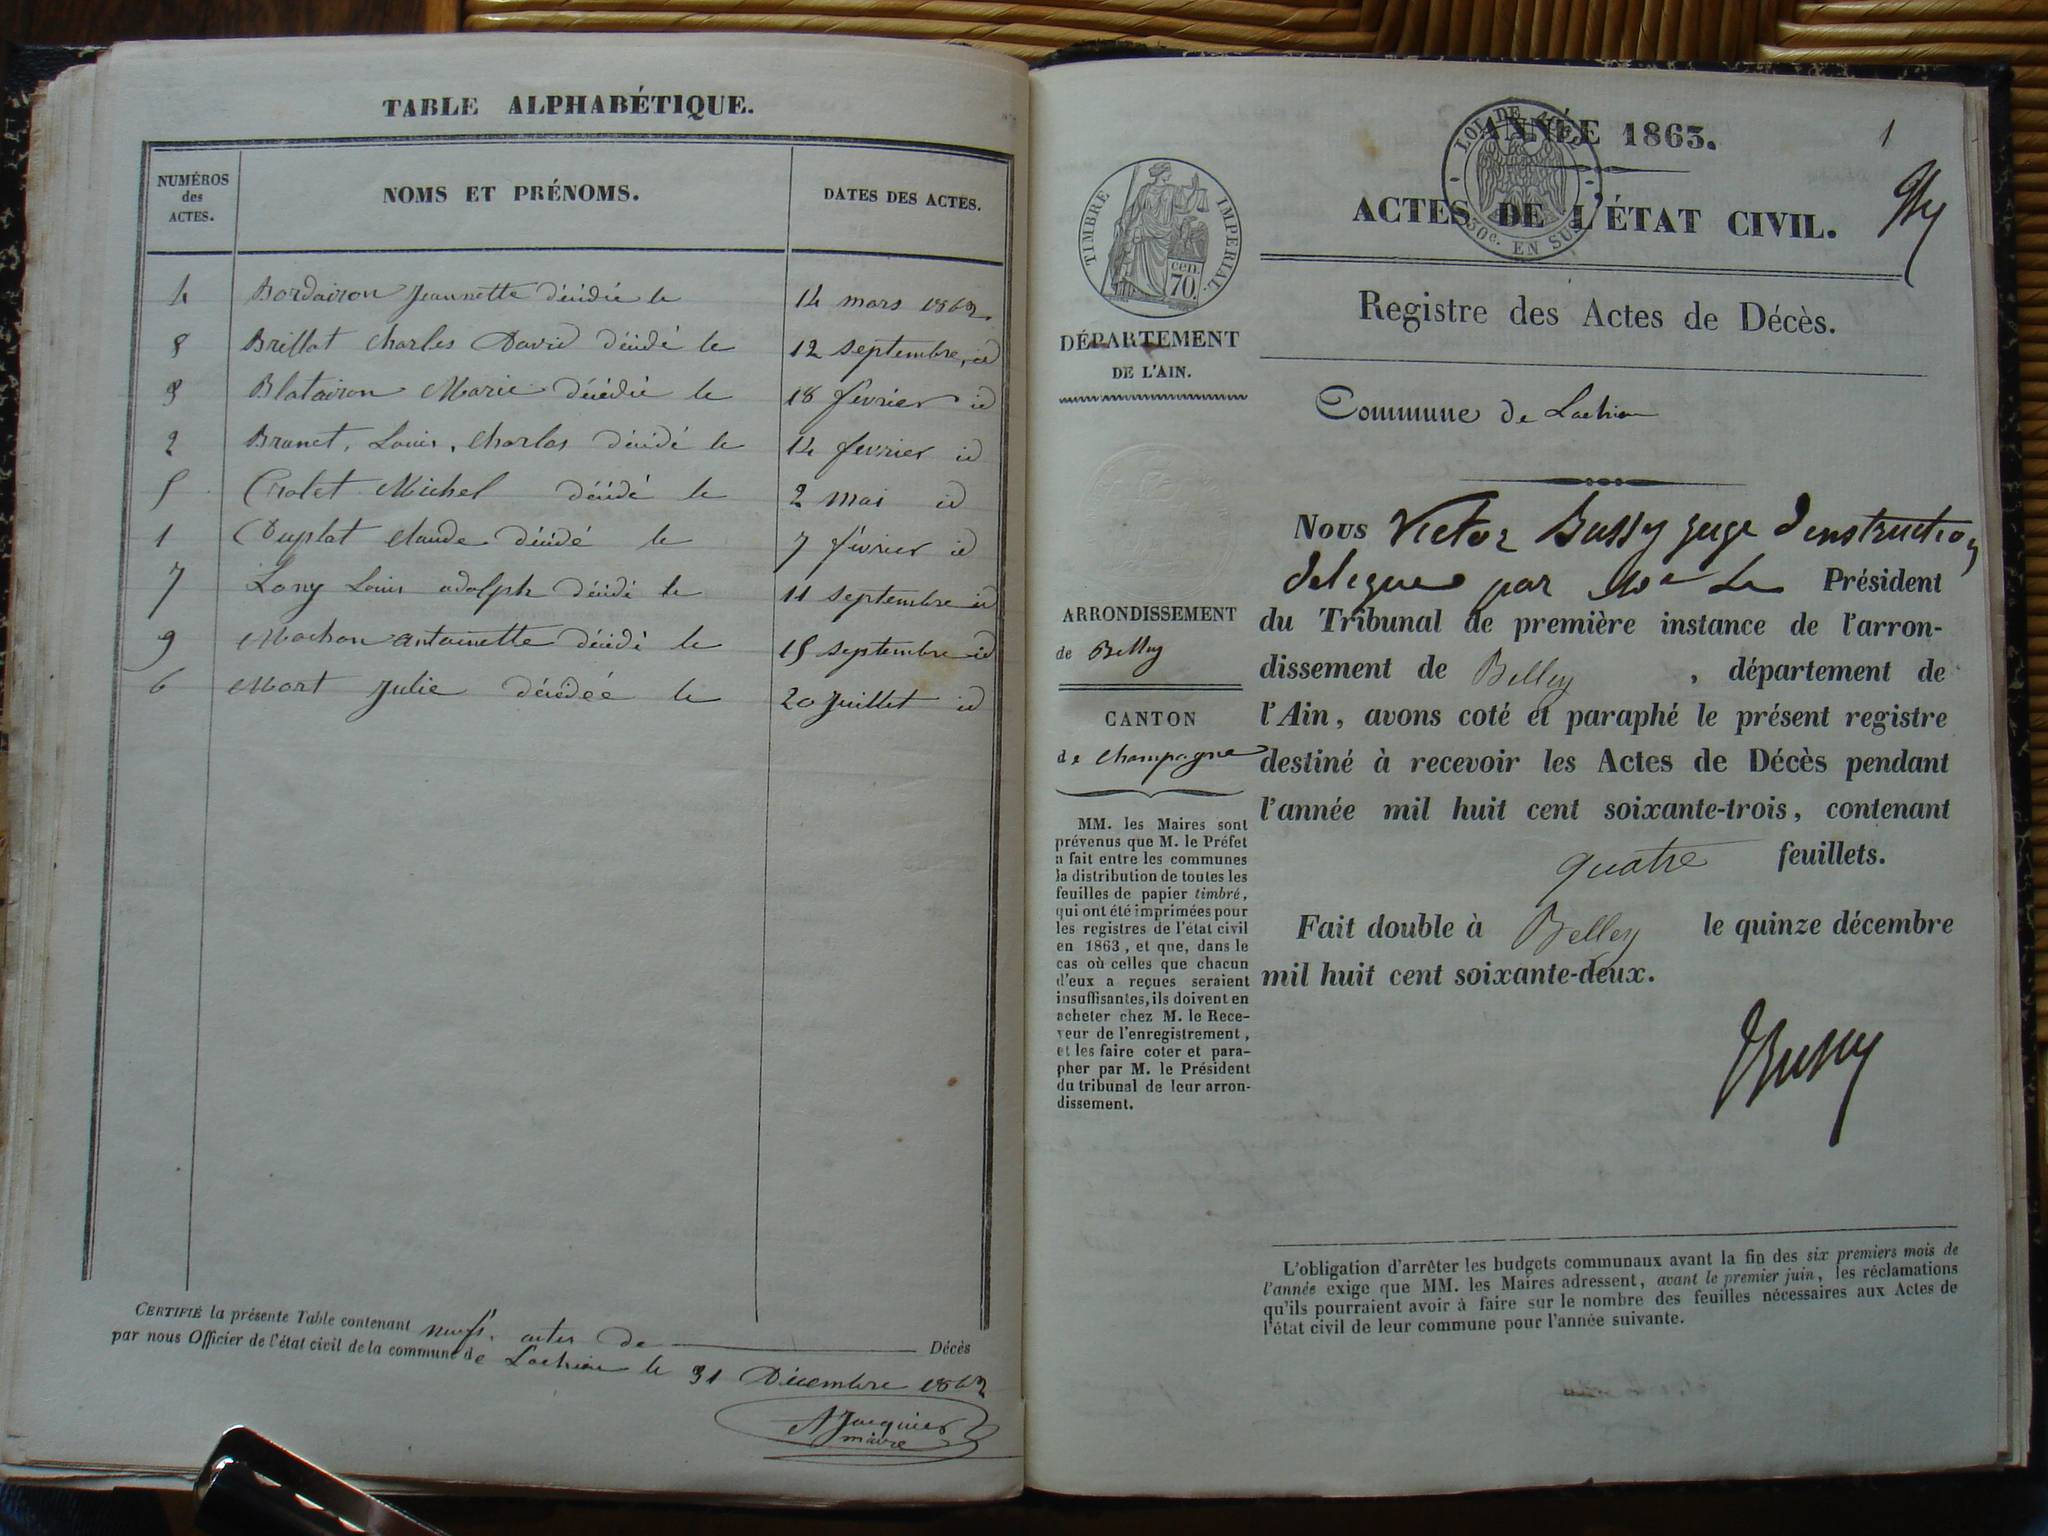 TABLE ALPHABÉTIQUE.
NUMÉROS des ACTES. NOMS ET PRÉNOMS. DATES DES ACTES.
4 Bordairon Jeannette décédée le 14 mars 1862.
8 Brillat Charles David décidé le 12 septembre, id
3 Blatairon Marie décédée le 18 février id
2 Brunet, Louis, Charles décidé le 14 fevrier id
5 Crolet Michel décidé le 2 mai id
1 Duplat Claude décidé le 7 février id
7 Lony Louis adolph décidé le 11 septembre id
9 Mochon antoinette décidé le 15 septembre id
6 Mort Julie décédéé le 20 Juillet id
CERTIFIÉ la présente Table contenant neuf. actes de Décès
par nous Officier de l'état civil de la commune de Lochieu le 31 Décembre 1862
A Jacquier
maire
1
ANNÉE 1863.
LOI DE
50c. EN SUS
ACTES DE L'ÉTAT CIVIL.
TIMBRE IMPERIAL.
cen.
70.
Registre des Actes de Décès.
DÉPARTEMENT
DE L'AIN.
Commune de Lochieu
ARRONDISSEMENT
de Belley
CANTON
de Champagne
MM. les Maires sont
prévenus que M. le Préfet
a fait entre les communes
la distribution de toutes les
feuilles de papier timbré,
qui ont été imprimées pour
les registres de l'état civil
en 1863, et que, dans le
cas où celles que chacun
d'eux a reçues seraient
insuffisantes, ils doivent en
acheter chez M. le Rece-
veur de l'enregistrement,
et les faire coter et para-
pher par M. le Président
du tribunal de leur arron-
dissement.
Nous Victor Bussy juge d'instruction
delegue par Mr Le Président
du Tribunal de première instance de l'arron-
dissement de Belley, département de
l'Ain, avons coté et paraphé le présent registre
destiné à recevoir les Actes de Décès pendant
l'année mil huit cent soixante-trois, contenant
quatre feuillets.
Fait double à Belley le quinze décembre
mil huit cent soixante-deux.
Bussy
L'obligation d'arrêter les budgets communaux avant la fin des six premiers mois de
l'année exige que MM. les Maires adressent, avant le premier juin, les réclamations
qu'ils pourraient avoir à faire sur le nombre des feuilles nécessaires aux Actes de
l'état civil de leur commune pour l'année suivante.